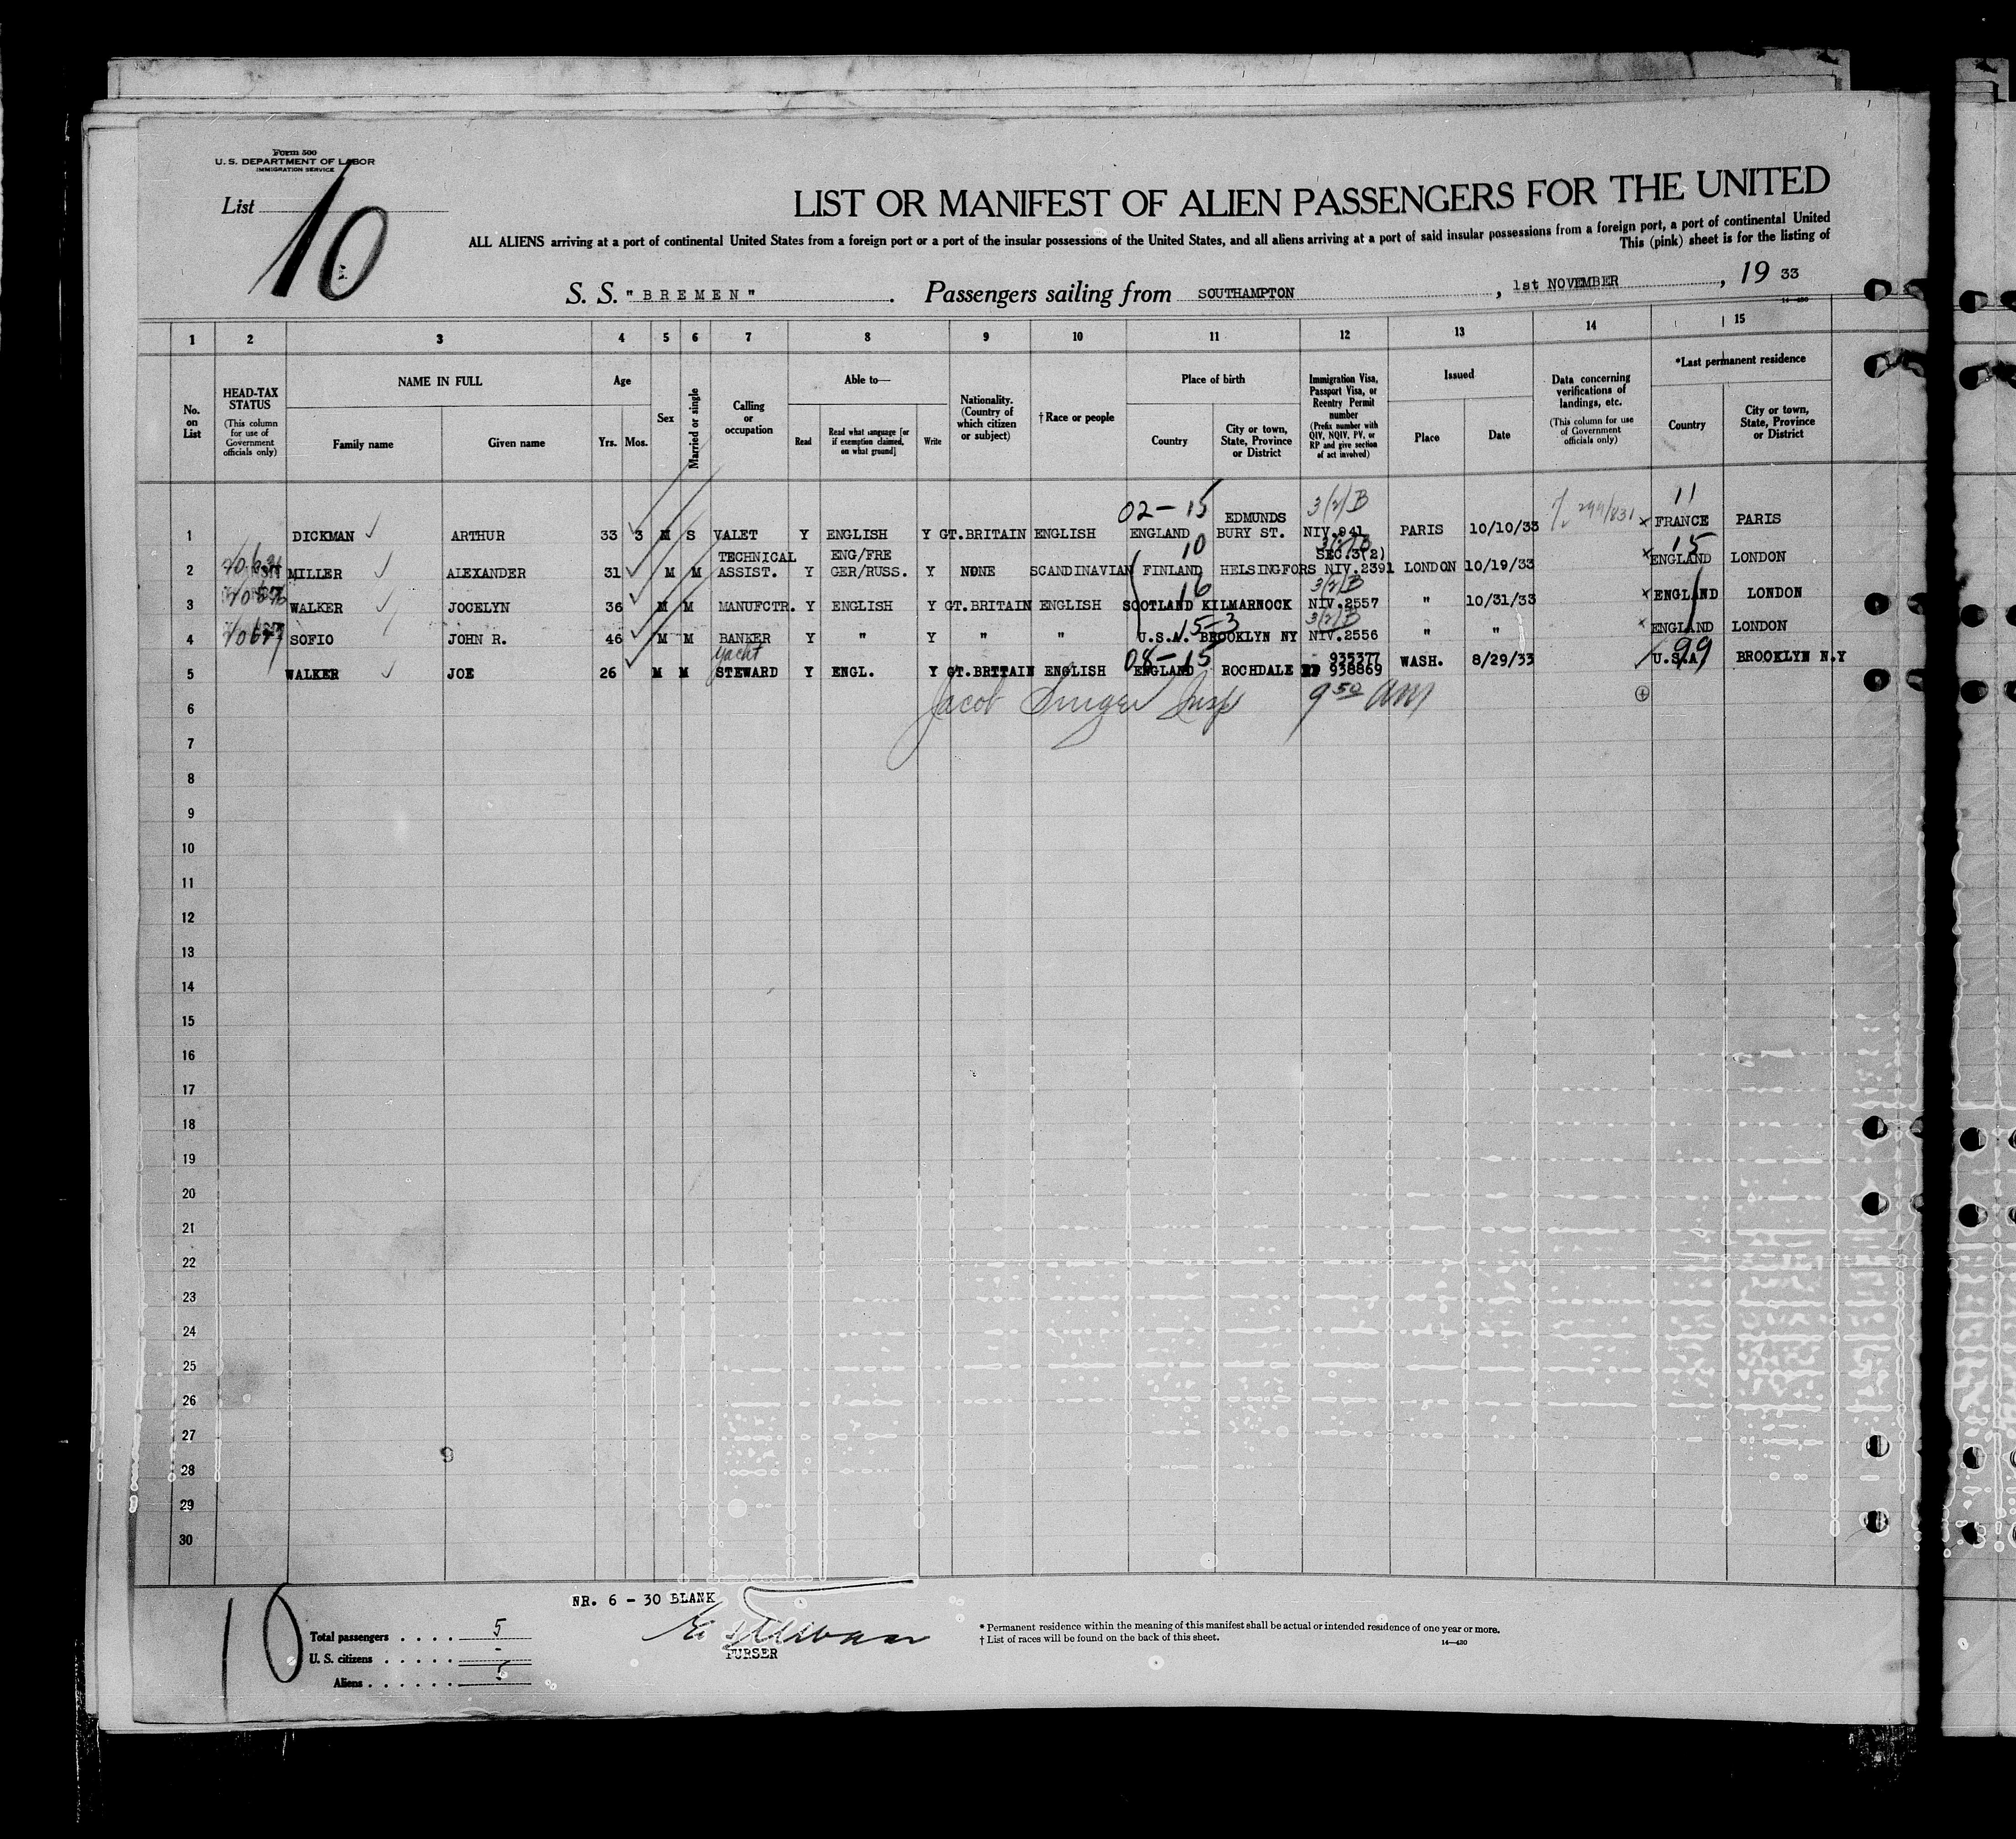 Form 500
U. S. DEPARTMENT OF LABOR
IMMIGRATION SERVICE
List 10
LIST OR MANIFEST OF ALIEN PASSENGERS FOR THE UNITED
ALL ALIENS arriving at a port of continental United States from a foreign port or a port of the insular possessions of the United States, and all aliens arriving at a port of said insular possessions from a foreign port, a port of continental United
This (pink) sheet is for the listing of
S. S. "BREMEN" . Passengers sailing from SOUTHAMPTON , 1st NOVEMBER , 19 33
14—430
1 2 3 4 5 6 7 8 9 10 11 12 13 14 15
No. on List
HEAD-TAX STATUS (This column for use of Government officials only)
NAME IN FULL
Family name Given name
Age
Yrs. Mos.
Sex
Married or single
Calling or occupation
Able to—
Read Read what language [or if exemption claimed, on what ground] Write
Nationality. (Country of which citizen or subject)
† Race or people
Place of birth
Country City or town, State, Province or District
Immigration Visa, Passport Visa, or Reentry Permit number (Prefix number with QIV, NQIV, PV, or RP and give section of act involved)
Issued
Place Date
Data concerning verifications of landings, etc. (This column for use of Government officials only)
*Last permanent residence
Country City or town, State, Province or District
02-15 EDMUNDS 3/2/B 11
1 DICKMAN ARTHUR 33 3 M S VALET Y ENGLISH Y GT.BRITAIN ENGLISH ENGLAND BURY ST. NIV.941 PARIS 10/10/33 299/831 x FRANCE PARIS
TECHNICAL ENG/FRE 10 SEC.3(2) 15
2 MILLER ALEXANDER 31 M M ASSIST. Y GER/RUSS. Y NONE SCANDINAVIAN FINLAND HELSINGFORS NIV.2391 LONDON 10/19/33 x ENGLAND LONDON
16 3/2/B
3 WALKER JOCELYN 36 M M MANUFCTR. Y ENGLISH Y GT.BRITAIN ENGLISH SCOTLAND KILMARNOCK NIV.2557 " 10/31/33 x ENGLAND LONDON
15-3 3/2/B
4 SOFIO JOHN R. 46 M M BANKER Y " Y " " U.S.A. BROOKLYN NY NIV.2556 " " x ENGLAND LONDON
Yacht 08-15 935377 99
5 WALKER JOE 26 M M STEWARD Y ENGL. Y GT.BRITAIN ENGLISH ENGLAND ROCHDALE RP 938869 WASH. 8/29/33 U.S.A BROOKLYN N.Y
6 Jacob Insp 9 50 am
7
8
9
10
11
12
13
14
15
16
17
18
19
20
21
22
23
24
25
26
27
28
29
30
9
NR. 6 - 30 BLANK
10
Total passengers . . . . 5
U. S. citizens . . . . . -
Aliens . . . . . .
PURSER
* Permanent residence within the meaning of this manifest shall be actual or intended residence of one year or more.
† List of races will be found on the back of this sheet.
14—430